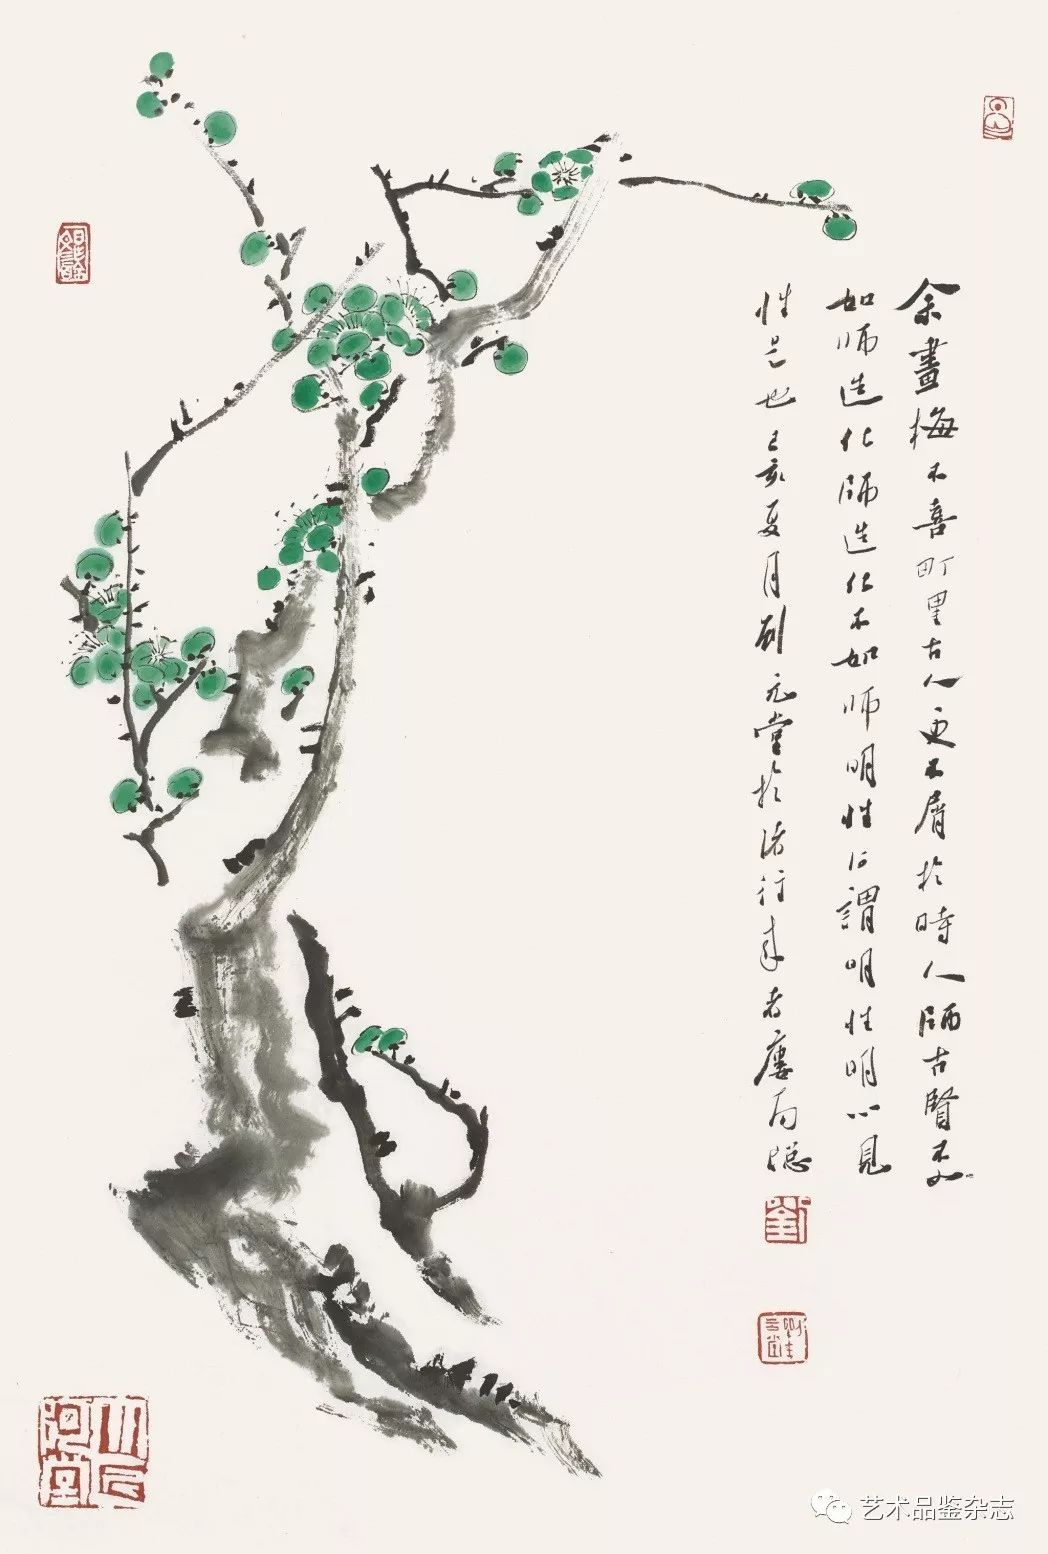 余畫梅不喜町里古人更不屑於時人師古賢不
如師造化師造化不如師明性所謂明性明心見
性是也己亥夏月劉元堂於
劉
艺术品鉴杂志